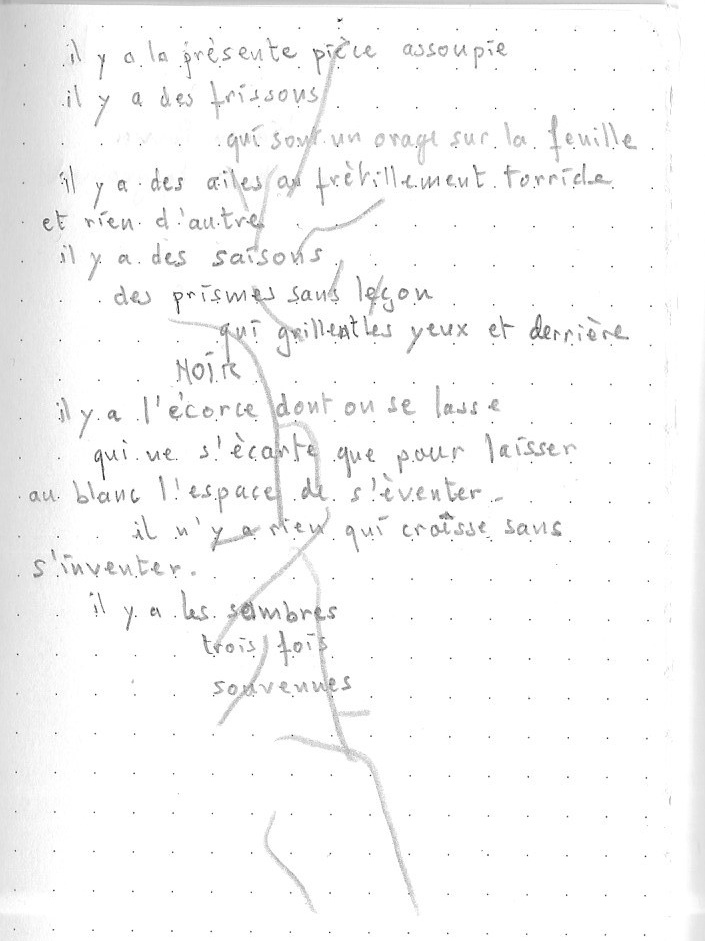 il y a la présente pièce assoupie
il y a des frissons
qui sont un orage sur la feuille
il y a des ailes au frétillement torride
et rien d'autre
il y a des saisons
des prismes sans leçon
qui grillent les yeux et derrière
NOIR
il y a l'écorce dont on se lasse
qui ne s'écarte que pour laisser
au blanc l'espace de s'éventer.
il n'y a rien qui croîsse sans
s'inventer.
il y a les sombres
trois fois
souvennes